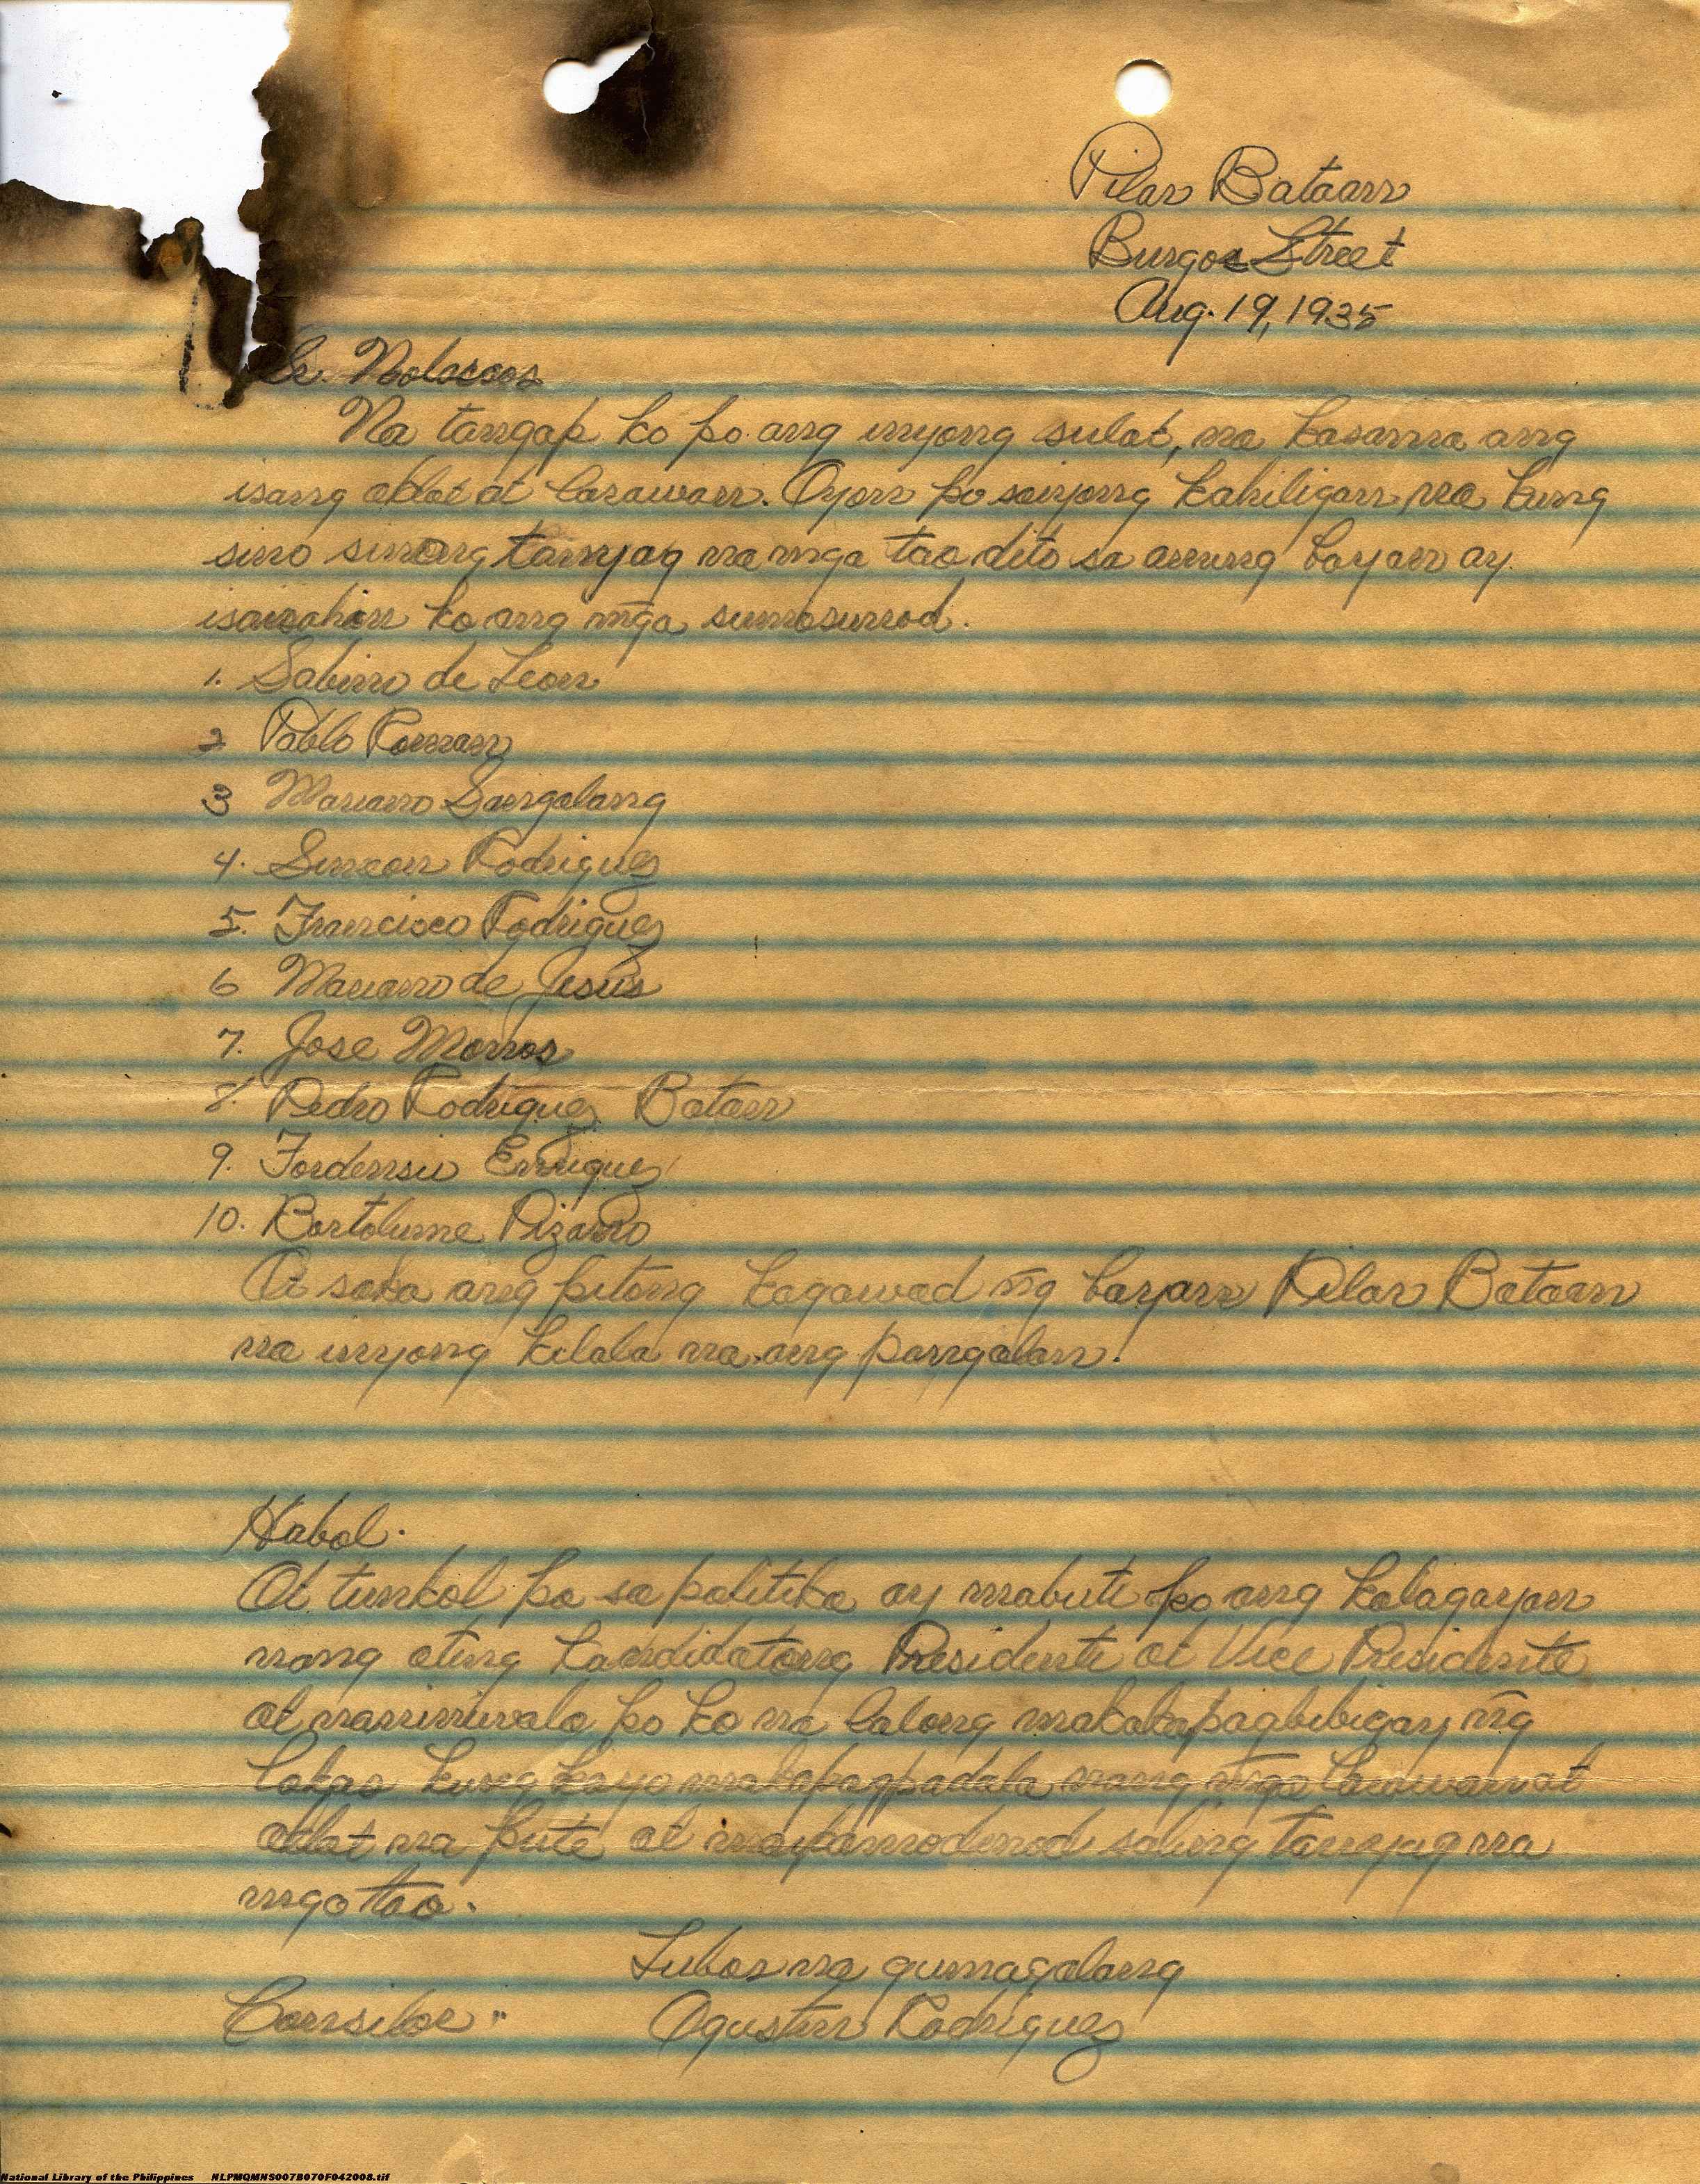 Pilar Bataan
Burgos Street
Aug. 19, 1935
Sr. Nolascos
Na tangap ko po ang inyong sulat, na kasama ang
isang aklat at larawan. Oyon po sainyong kahiligan na kung
sino sinong tanyag na mga tao dito sa aming bayan ay
isaisahin ko ang mg̃a sumosunod.
1. Sabino de Leon
2 Pablo Roman
3 Mariano Sangalang
4. Simeon Rodriguez
5. Francisco Rodriguez
6 Mariano de Jesus
7. Jose Morros
8. Pedro Rodriguez Bataan
9. Enriquez
10. Bortolume Pizarro
At saka ang pitong kagawad ng̃ bayan Pilar Bataan
na inyong kilala na ang pangalan.
Habol.
At tunkol po sa politika ay mabuti po ang kalagayan
nang ating kandidatong Presidente at Vice Presidente
at naniniwala po ko na lalong makakapagbibigay ng̃
lakas kung kayo makapagpadala nang mg̃a larawan at
aklat na puti at saking tanyag na
mga tao.
Lubos na gumagalang
Consilor " Agustin Rodriguez
National Library of the Philippines NLPMQMNS007B070F042008.tif